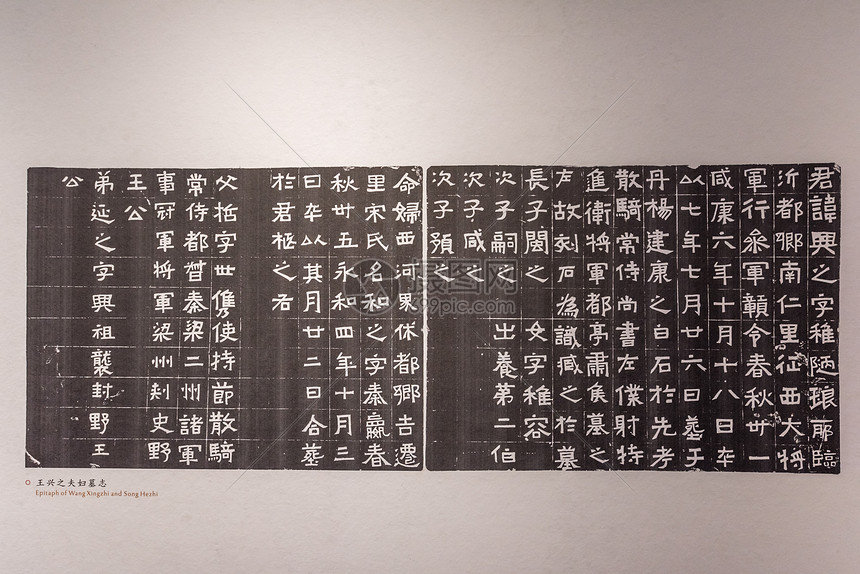 君諱興之字稚陋琅耶臨
沂都鄉南仁里征西大將
軍行參軍贛令春秋卅一
咸康六年十月十八日卒
以七年七月廿六日葬于
丹楊建康之白石於先考
散騎常侍尚書左僕射特
進衛將軍都亭肅侯墓之
左故刻石為識臧之於墓
長子閩之 女字稚容
次子嗣之 出養第二伯
次子咸之
次子預之
命婦西河界休都鄉吉遷
里宋氏名和之字秦嬴春
秋卅五永和四年十月三
日卒以其月廿二日合葬
於君柩之右
父哲字世儁使持節散騎
常侍都督秦梁二州諸軍
事冠軍將軍梁州刺史野
王公
弟延之字興祖襲封野王
公
王兴之夫妇墓志
Epitaph of Wang Xingzhi and Song Hezhi
摄图网
699pic.com